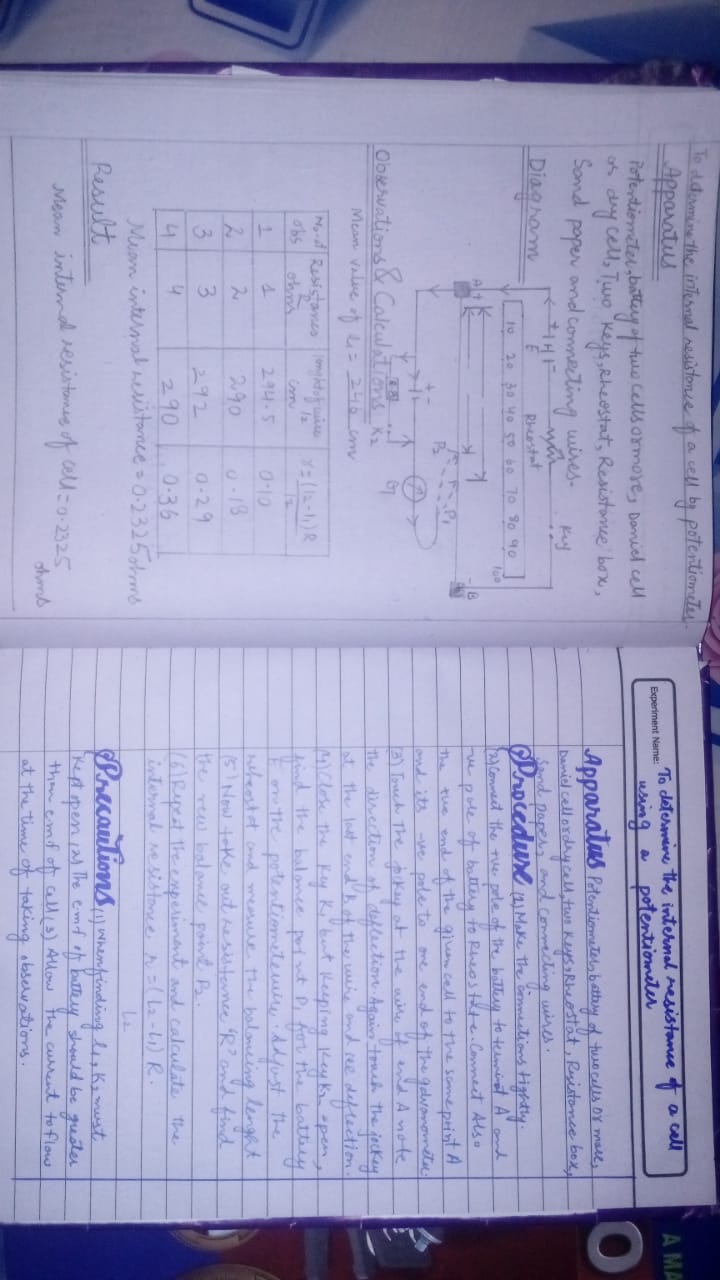 To determine the internal resistance of a cell by potentiometer.
Apparatus
Potentiometer, battery of two cells or more, Daniel cell
or dry cell, Two Keys, Rheostat, Resistance box,
Sand paper and connecting wires.
Diagram
+ -
E
Rheostat
Key
10 20 30 40 50 60 70 80 90 100
A +
- B
P2
P1
+ -
G
K2
Observations & Calculations
Mean value of l1 = cm
No. of obs
Resistance R ohms
lenght of wire l2 cm
r = (l2-l1)R
l2
1 1 294.5 0.10
2 2 290 0.18
3 3 292 0.29
4 4 290 0.36
Mean internal resistance = 0.2325 ohms
Result
Mean internal resistance of cell = 0.2325
ohms
Experiment Name: To determine the internal resistance of a cell
using a potentiometer
Apparatus Potentiometer, battery of two cells or more,
Daniel cell or dry cell, two Keys, Rheostat, Resistance box,
Sand paper, and connecting wires.
Procedure (1) Make the connections tightly.
(2) Connect the +ve pole of the battery to A and
-ve pole of battery to Rheostate. Connect Also
the +ve end of the given cell to the same point A
and its -ve pole to one end of the galvanometer.
(3) Touch The jockey at the wire of end A note
the direction of deflection. Again touch the jockey
at the last end B of the wire and see deflection.
(4) Close the Key K1 but Keeping Key K2 open,
find the balance point P1 for the battery
E on the potentiometewire. Adjust the
rheostat and measure the balancing lenght
(5) Now take out resistance 'R' and find
the new balance point P2.
(6) Repeat the experiment and calculate the
internal resistance r = (L2-L1) R.
L2
Precautions (1) When finding l1, K2 must
Kept open, (2) The e.m.f of battery should be greater
then e.m.f of cell (3) Allow the current to flow
at the time of taking observations.
A MA
O